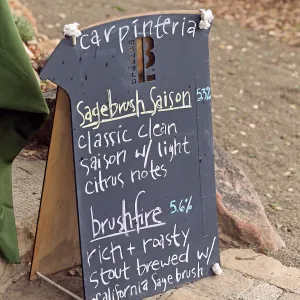 carpinteria
Sagebrush Saison
classic clean
saison w/ light
citrus notes
brushfire 5.6%
rich + roasty
stout brewed w/
california Sage brush